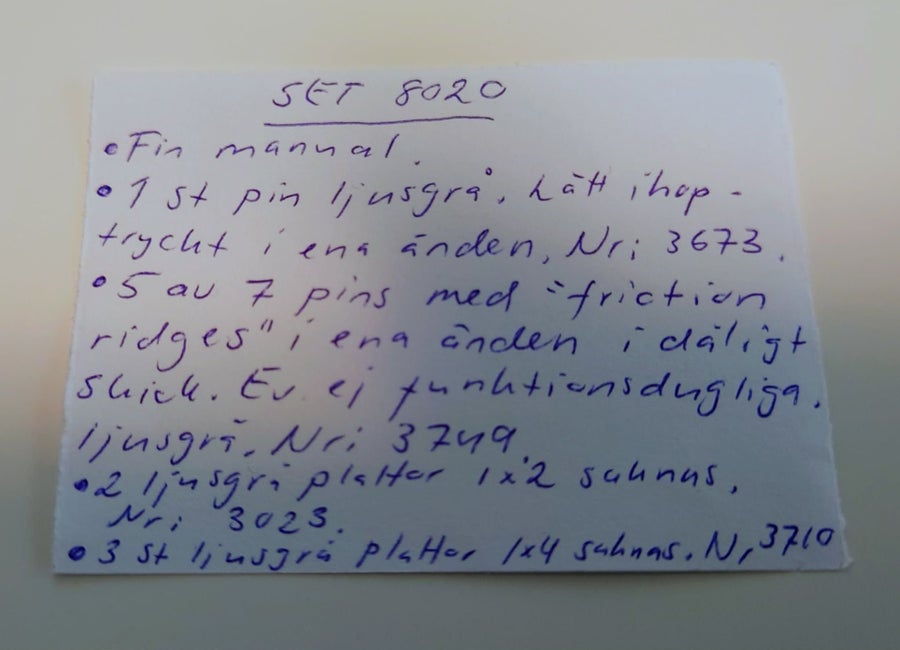 SET 8020
• Fin manual.
• 1 st pin ljusgrå. Lätt ihop-
tryckt i ena änden, Nr: 3673.
• 5 av 7 pins med "friction
ridges" i ena änden i dåligt
skick. Ev. ej funktionsdugliga.
ljusgrå. Nr: 3749.
• 2 ljusgrå plattor 1x2 saknas.
Nr: 3023.
• 3 st ljusgrå plattor 1x4 saknas. N, 3710